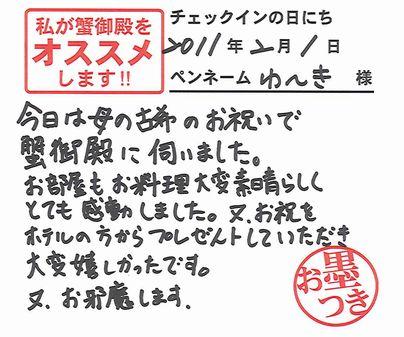 私が蟹御殿を
オススメ
します!!
チェックインの日にち
2011年2月1日
ペンネーム ゆんき 様
今日は母の古希のお祝いで
蟹御殿に伺いました。
お部屋もお料理大変素晴らしく
とても感動しました。又、お祝を
ホテルの方からプレゼントしていただき
大変嬉しかったです。
又、お邪魔します。
お墨
つき